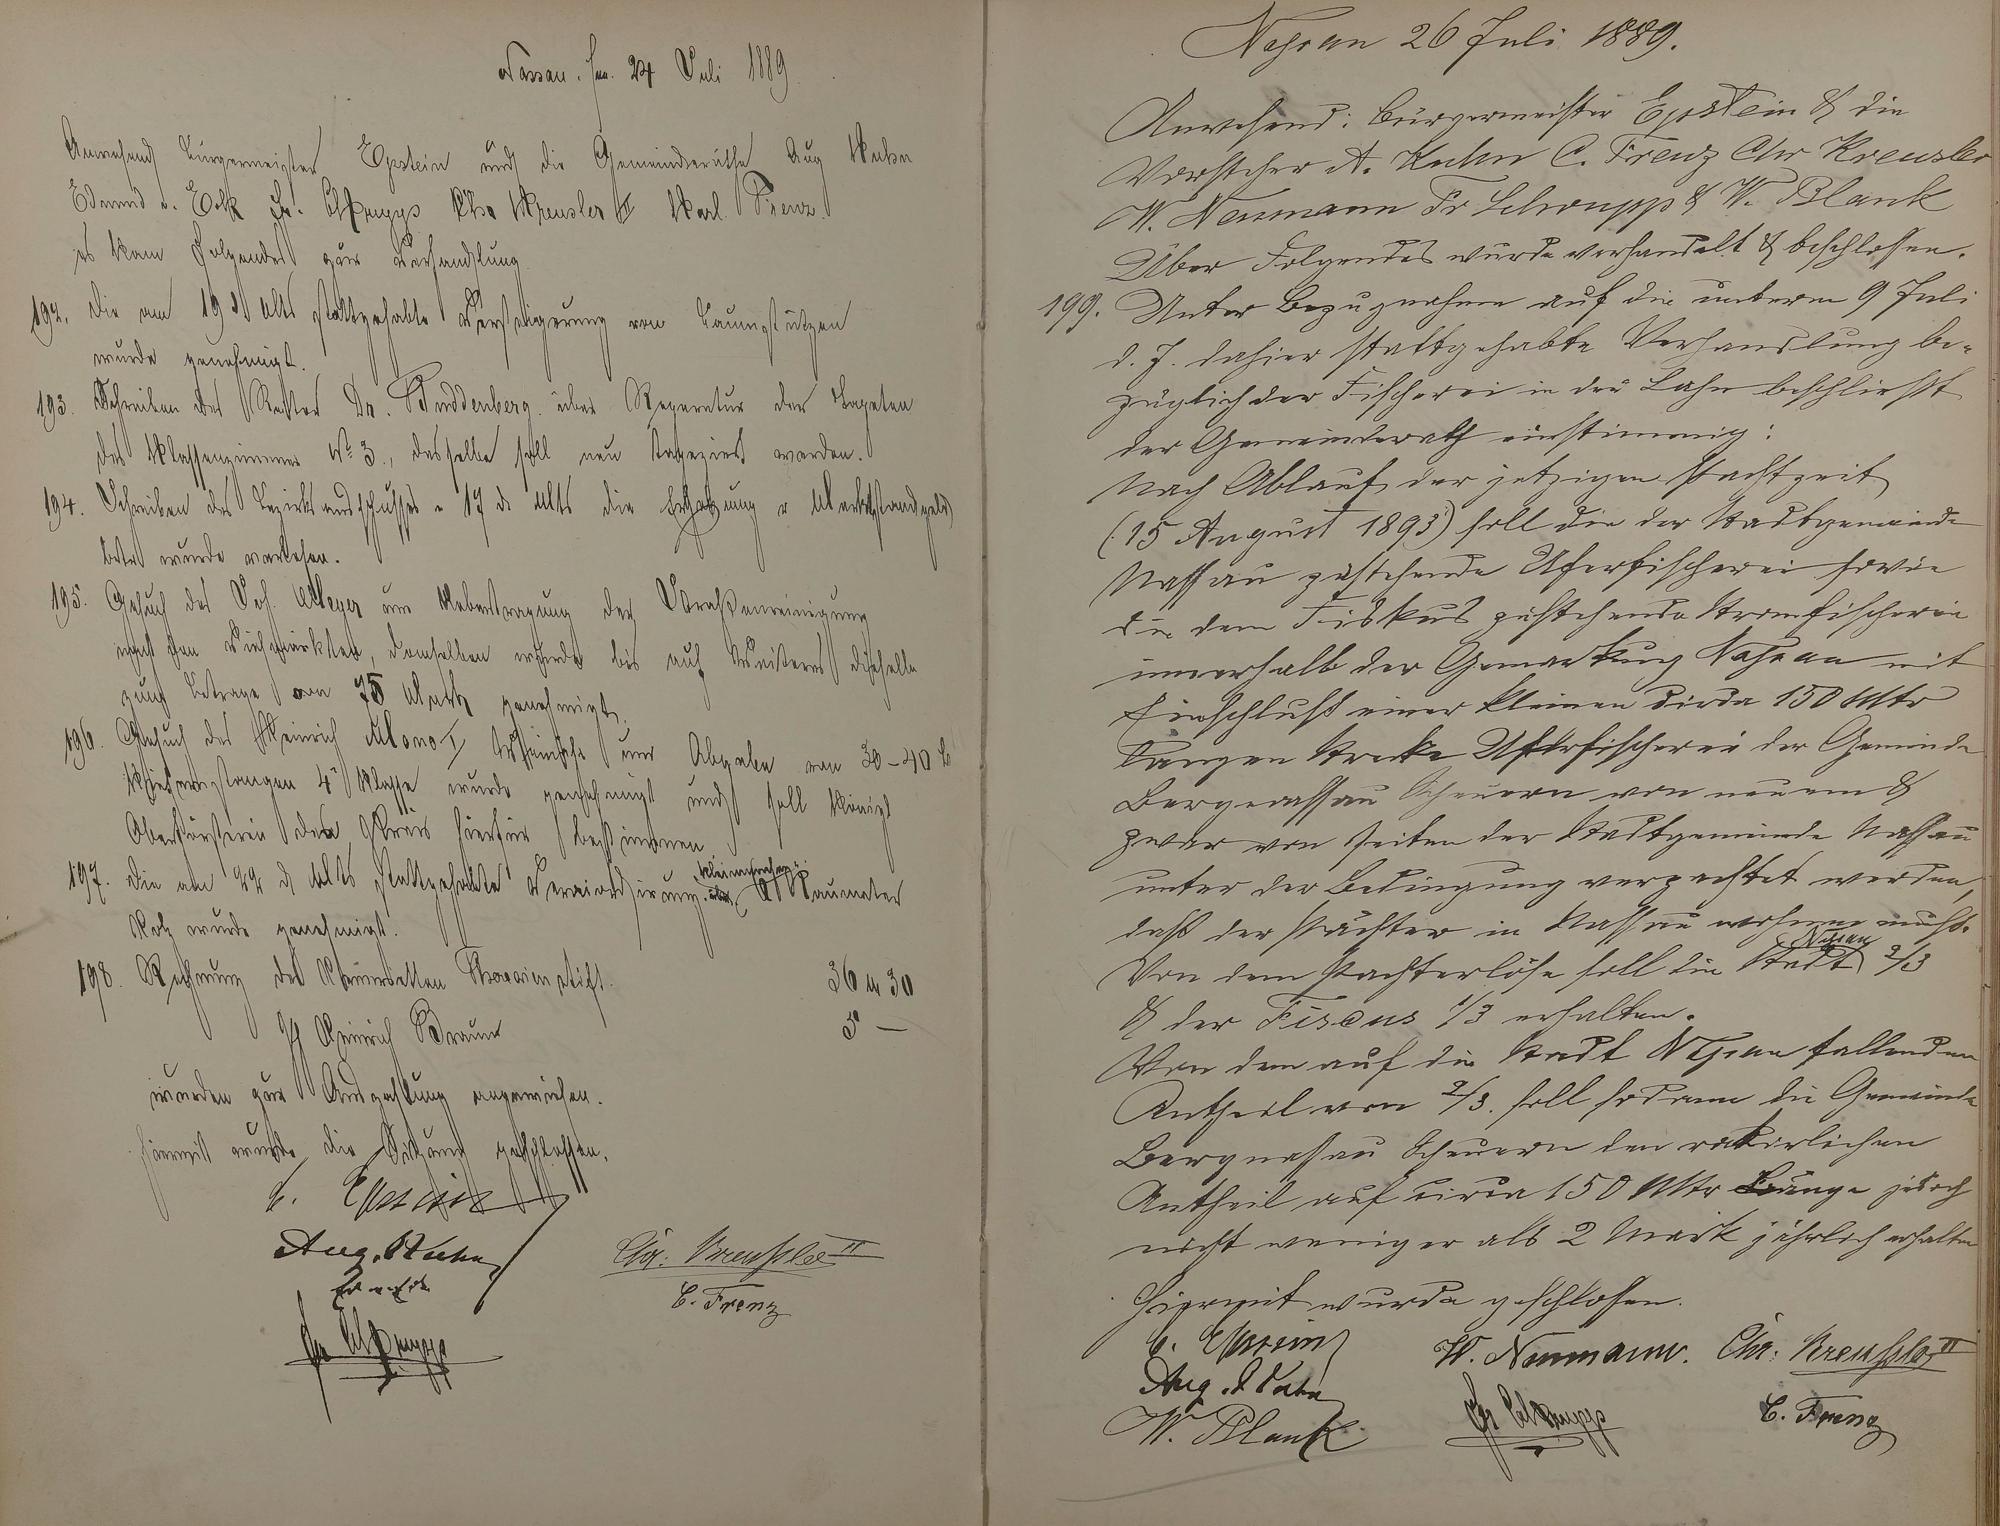 Nassau. den 24 Juli 1889
Anwesend Bürgermeister Epstein und die Gemeinderäthe Aug Kuhn
Edmund v. Eck Fr. Schrupp Chr Kreusler II Karl Frenz.
es kam folgendes zur Verhandlung
192. die am 19 d. Mts stattgehabte Versteigerung von Baumstützen
wurde genehmigt.
193. Schreiben des Rector Dr. Buddenberg über Reperatur der Tapeten
des Klassenzimmer No 3., dasselbe soll neu tapeziert werden.
194. Schreiben des Bezirksausschusses v 17 ds Mts die Erhebung v Marktstandgeld
betr wurde verlesen.
195. Gesuch des Joh. Meyer um Uebertragung der Straßenreinigung
nach den Viehmärkten, demselben wurde bis auf Weiteres dieselbe
zum Betrage von 75 Mark genehmigt.
196. Gesuch des Heinrich Mono I um Abgabe von 30-40
4r Klasse wurde genehmigt und soll Königl
Oberförsterei den Preis hierfür bestimmen
197. die am 22 d Mts stattgehabte Raummeter
Holz wurde genehmigt.
198. Rechnung des Theresienstift. 36 M 30
" Heinrich Braun 5 —
wurden zur Auszahlung angewiesen.
hiermit wurde die Sitzung geschlossen.
C. Epstein
Aug. Kuhn Chr. Kreusler II
Ed v Eck C. Frenz
Fr Schrupp
Nassau 26 Juli 1889.
Anwesend: Bürgermeister Epstein & die
Vorsteher A. Kuhn C. Frenz Chr Kreusler
W. Neumann Fr Schrupp & W. Blank
Über Folgendes wurde verhandelt & beschlossen.
199. Unter Bezugnahme auf die unterm 9 Juli
d. J. dahier stattgehabte Verhandlung be-
züglich der Fischerei in der Lahn beschließt
der Gemeinderath einstimmig:
Nach Ablauf der jetzigen Pachtzeit
(15 August 1893) soll die der Stadtgemeinde
Nassau zustehende Uferfischerei sowie
die dem Fiskus zustehende Stromfischerei
innerhalb der Gemarkung Nassau mit
Einschluß einer kleinen circa 150 Mtr
langen Strecke Uferfischerei der Gemeinde
Bergnassau Scheuern von neuem &
zwar von Seiten der Stadtgemeinde Nassau
unter der Bedingung verpachtet werden,
daß der Pächter in Nassau wohnen muß.
Von dem Pachterlöse soll die Stadt Nassau 2/3
& der Fiscus 1/3 erhalten.
Von dem auf die Stadt Nassau fallenden
Antheil von 2/3. soll sodann die Gemeinde
Bergnassau Scheuern den ratirlichen
Antheil auf circa 150 Mtr Länge jedoch
nicht weniger als 2 Mark jährlich erhalten
Hiermit wurde geschlossen.
C. Epstein W. Neumann. Chr. Kreusler II
Aug. Kuhn Fr Schrupp C. Frenz
W. Blank